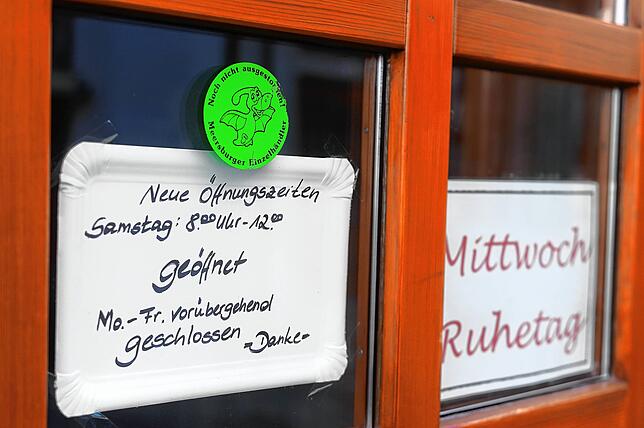 Noch nicht ausgestorben!
Meersburger Einzelhändler
Neue Öffnungszeiten
Samstag: 8.00 Uhr - 12.00
geöffnet
Mo. - Fr. vorübergehend
geschlossen - Danke -
Mittwoch
Ruhetag